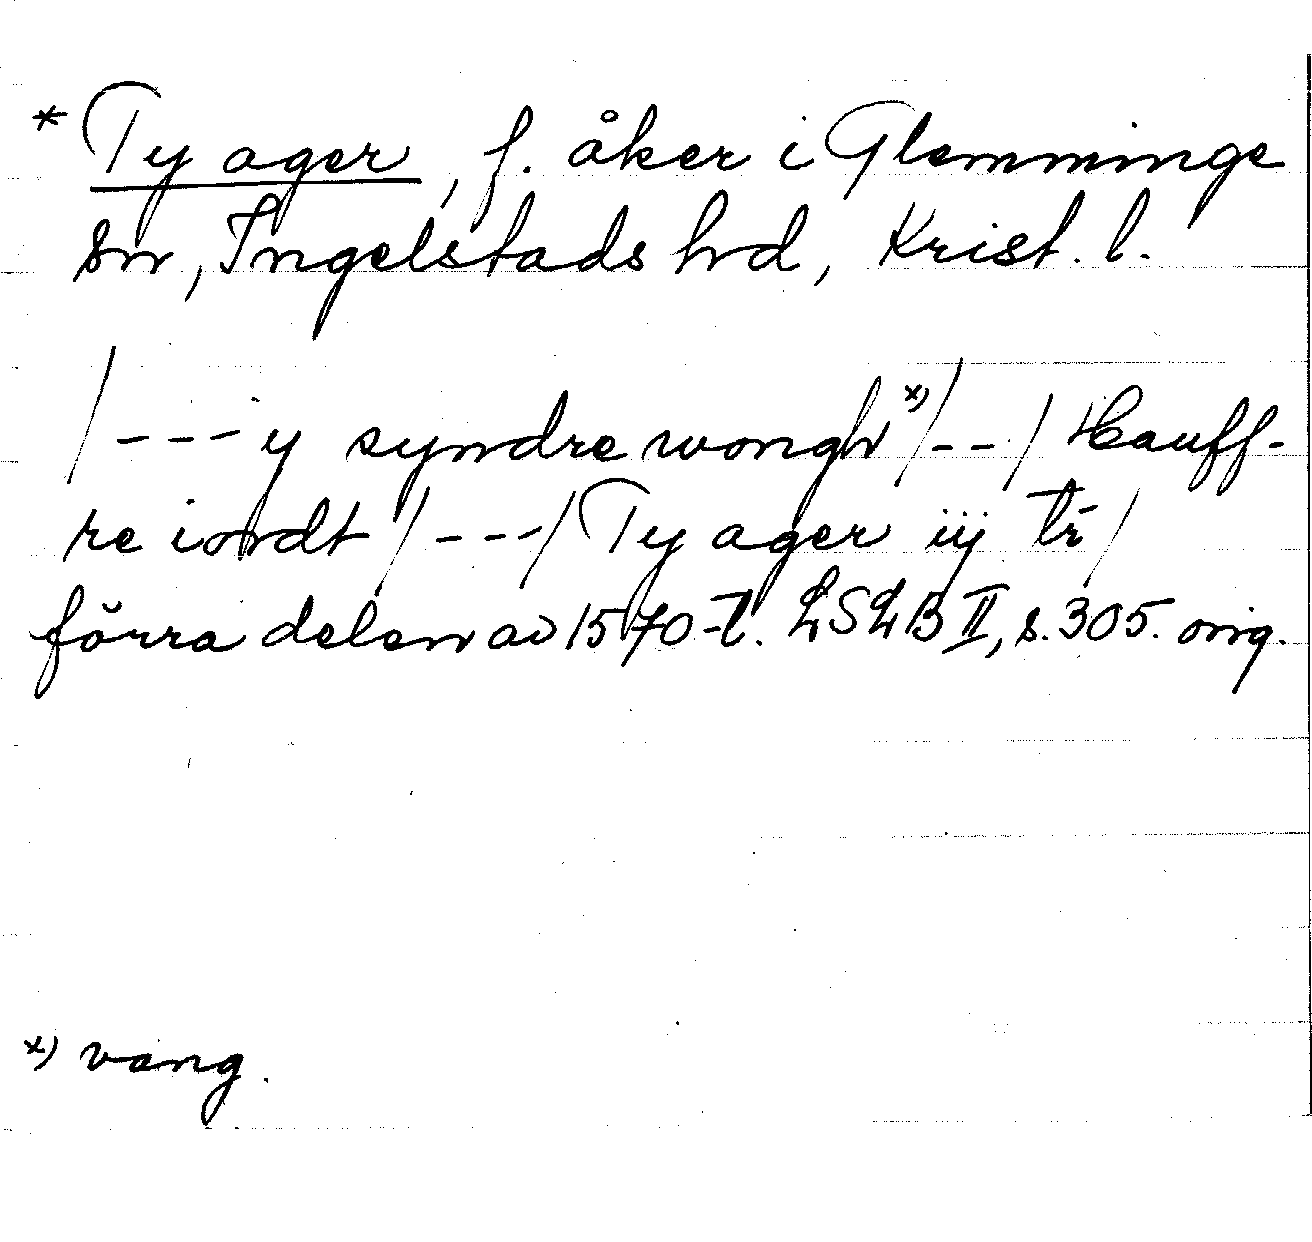 * Ty ager, f. åker i Glemminge
sn, Ingelstads hd, Krist. l.
/---y syndre wongh x)/--/ Hauff-
re iordt /---/ Ty ager iij tr /
förra delen av 1570-t. LSLB II, s. 305. orig.
x) vang.